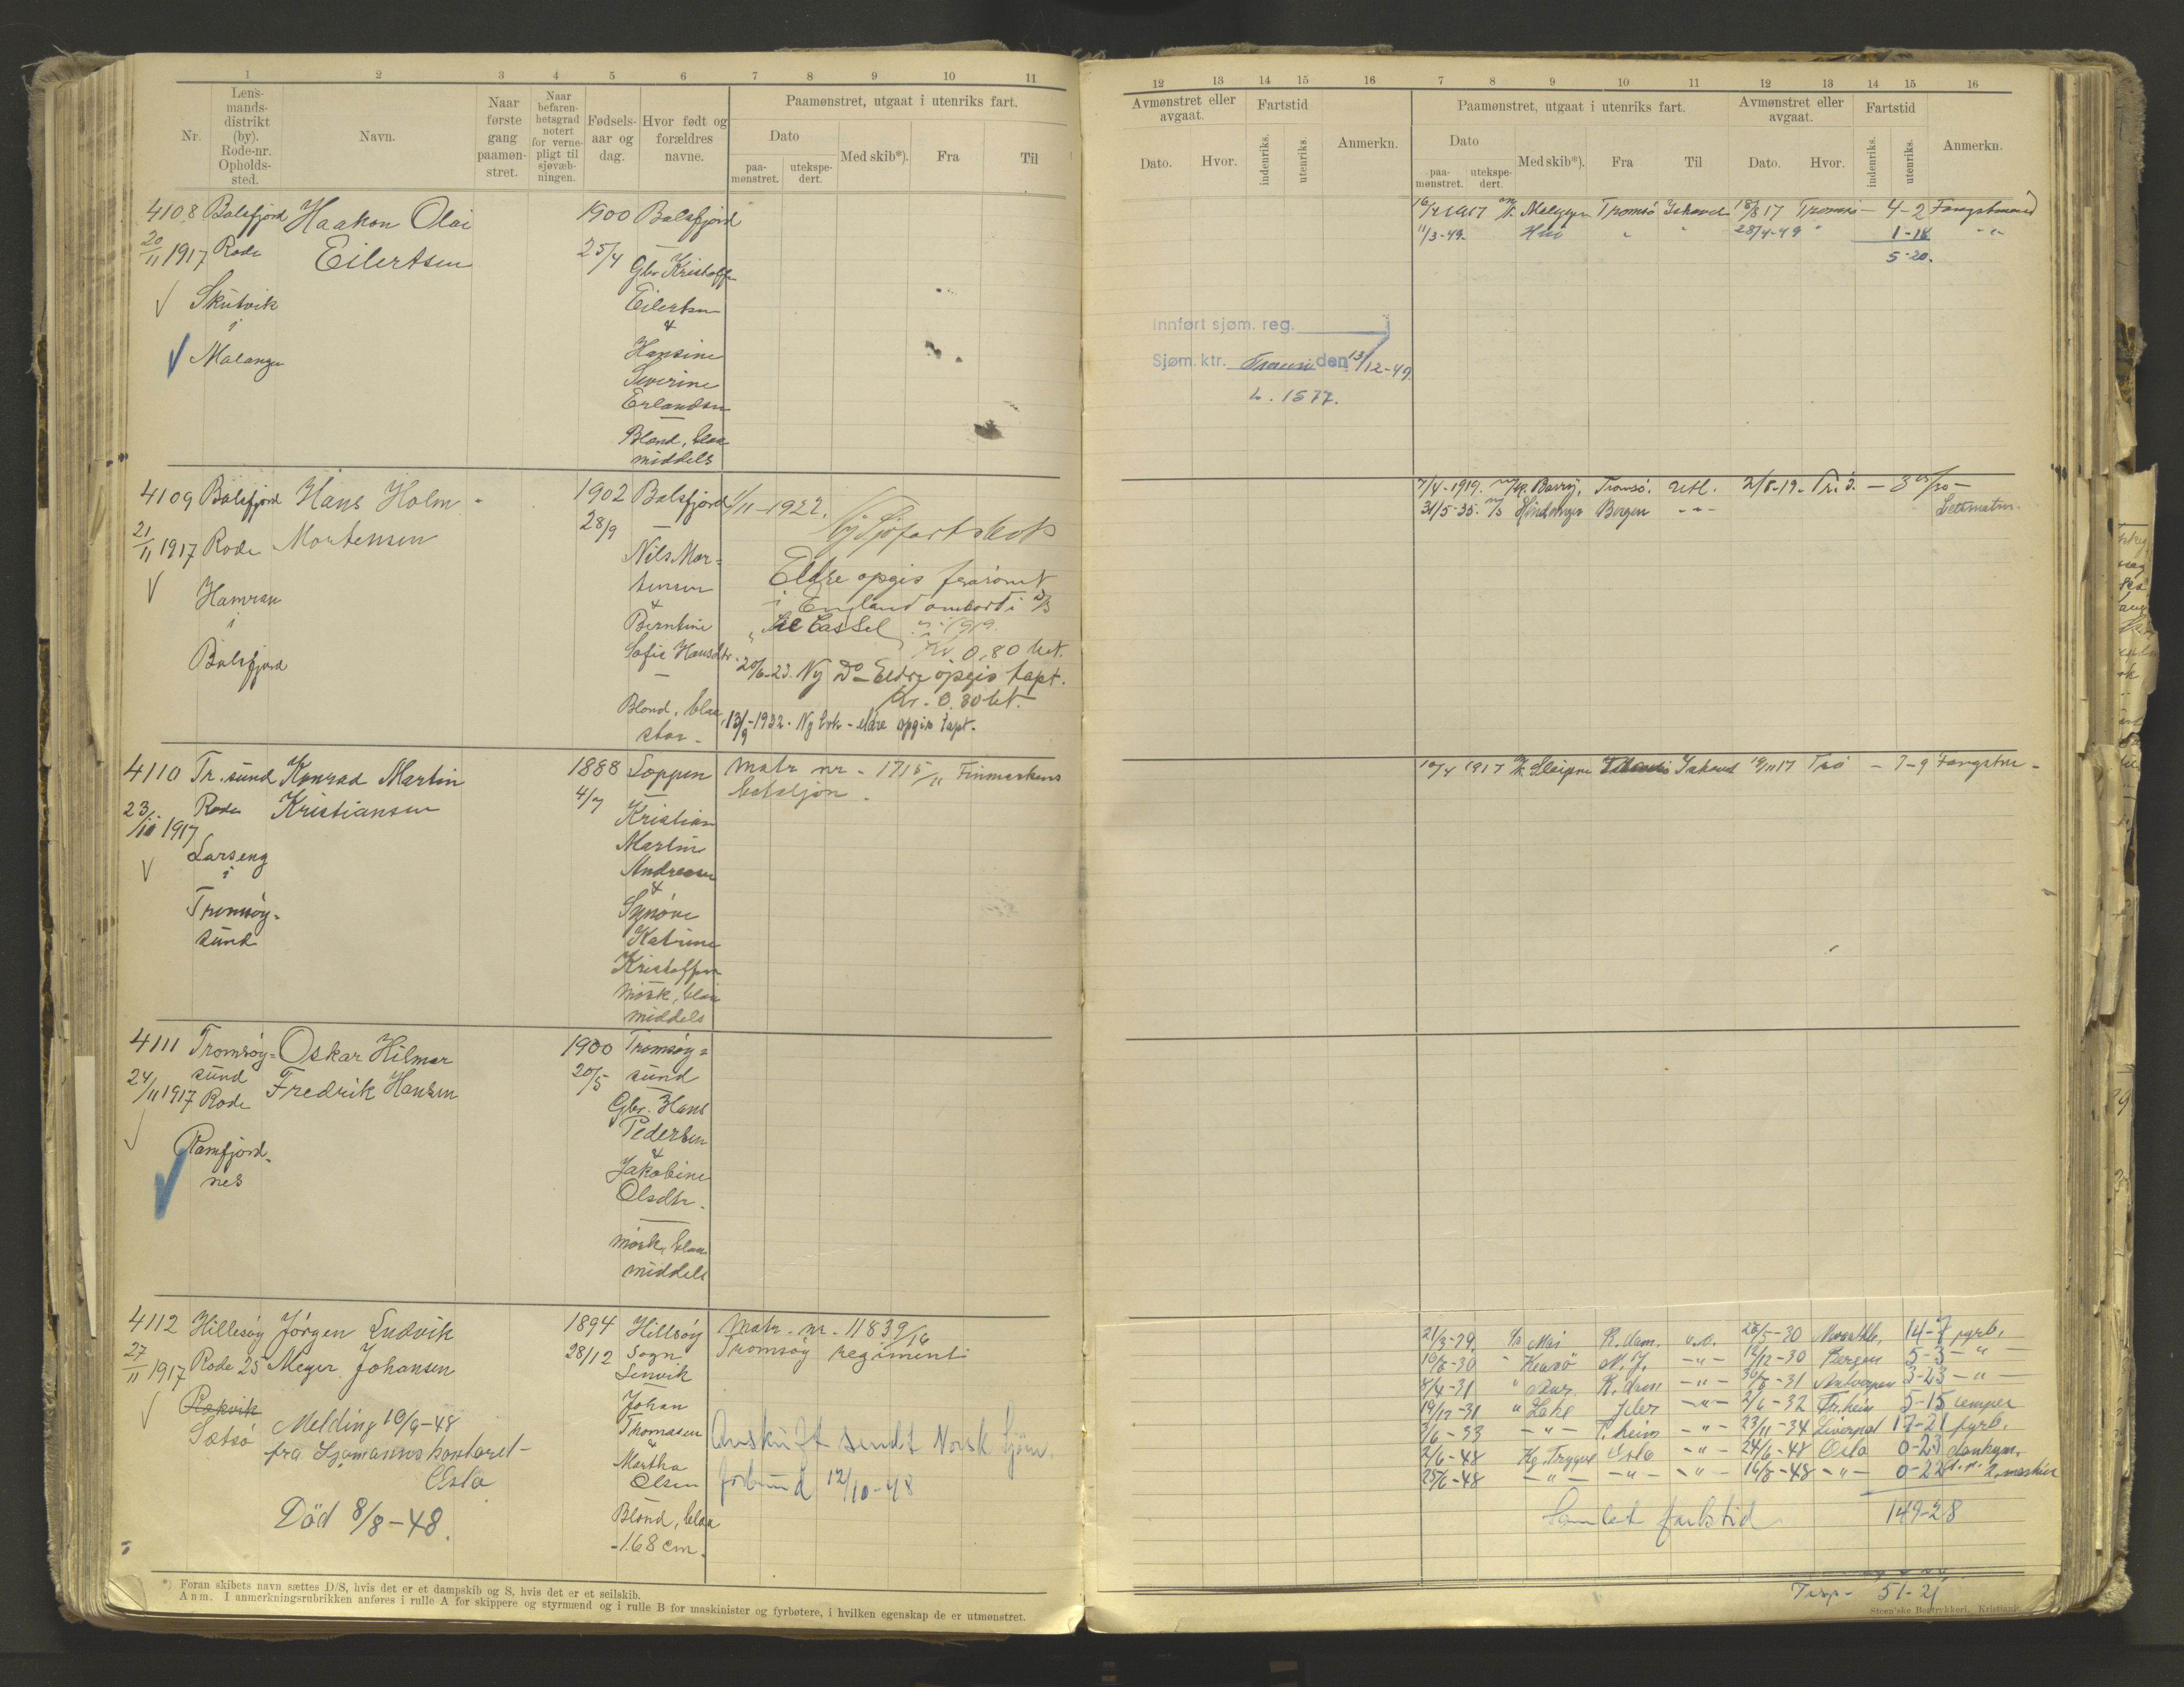 1 2 3 4 5 6 7 8 9 10 11
Nr.
Lens-
mands-
distrikt
(by).
Rode-nr.
Opholds-
sted.
Navn.
Naar
første
gang
paamøn-
stret.
Naar
befaren-
hetsgrad
notert
for verne-
pligt til
sjøvæb-
ningen.
Fødsels-
aar og
dag.
Hvor født og
forældres
navne.
Paamønstret, utgaat i utenriks fart.
Dato
paa-
mønstret.
utekspe-
dert.
Med skib*).
Fra
Til
4108 Balsfjord Haakon Olai 1900 Balsfjord
20/11 1917 Rode Eilertsen 25/4
Gbr. Kristoffer
Skutvik Eilertsen
i &
Malangen Hansine
Severine
Erlandsen
Blond, blaa
middels
4109 Balsfjord Hans Holm 1902 Balsfjord 1/11-1922.
21/11 1917 Rode Mortensen 28/9 Ny Sjøfartsbok
Nils Mor-
tensen
Eldre opgis
i England ombord i D/S
Hamran
i
Balsfjord
&
Berntine
Sofie Hansdtr.
Cassel 1919.
Kr 0,80 bet.
20/6-23. Ny Do - Eldre opgis tapt.
Kr. 0.80 bet.
Blond, blaa,
stor -
13/9-1932. Ny bok - eldre opgis tapt.
4110 Tr.sund Konrad Martin 1888 Loppen Matr nr. 1715/11 Finmarkens
23/11 1917 Rode Kristiansen 4/7 bataljon.
Kristian
Martin
Andreasen
&
Synøve
Katrine
Kristoffersen
Larseng
i
Tromsøy-
sund
mørk, blaa
middels
4111 Tromsøy- Oskar Hilmar 1900 Tromsøy-
sund Fredrik Hansen 20/5 sund
24/11 1917 Rode
Gbr. Hans
Pedersen
&
Jakobine
Olsdtr.
Ramfjord-
nes
mørk, blaa
middels
4112 Hillesøy Jørgen Ludvik 1894 Hillsøy Matr. nr. 11839/16
27/11 1917 Rode 25 Meyer Johansen 28/12 Sogn Tromsøy regiment
Lenvik
Rakvik
Johan
Thomasen
&
Martha
Olsen
Melding 10/9-48
fra Sjømannskontoret -
Oslo
Død 8/8-48.
Avskrift sendt Norsk Sjøm.
forbund 12/10-48
Blond, blaa
-168 cm.
*) Foran skibets navn sættes D/S, hvis det er et dampskib og S, hvis det er et seilskib.
Anm. I anmerkningsrubrikken anføres i rulle A for skippere og styrmænd og i rulle B for maskinister og fyrbøtere, i hvilken egenskap de er utmønstret.
12 13 14 15 16 7 8 9 10 11 12 13 14 15 16
Avmønstret eller
avgaat.
Dato. Hvor.
Fartstid
indenriks.
utenriks.
Anmerkn.
Paamønstret, utgaat i utenriks fart.
Dato
paa-
mønstret.
utekspe-
dert.
Med skib*).
Fra
Til
Avmønstret eller
avgaat.
Dato. Hvor.
Fartstid
indenriks.
utenriks.
Anmerkn.
Tromsø Ishavet 18/8 17 Tromsø - 4-2 Fangstmand
11/3-49. " " 28/4-49 " 1-18 -"-
5-20.
Innført sjøm. reg.
Sjøm. ktr. den 13/12-49.
L. 1577.
7/4-1919. Tromsø. Utl. 2/8-19. Tr.ø. - 3 25/30 -
31/5-35. Bergen -"- Lettmatr.
10/4 1917 Ishavet 19/11 17 Trø - 7-9 Fangstm -
21/3-29. S/S Mai R.dam. 26/5-30 14-7 fyrb.
10/8-30 " N.Y. -"- 12/12-30 Bergen 5-3 -"-
8/4-31 " -"- 30/8-31 Antwerpen 3-23 -"-
19/12-31 " -"- 2/6-32 Tr.heim 5-15 lemper
3/6-33 -"- T.heim -"- 23/11-34 Liverpol 17-21 fyrb.
2/6-48 Kg. Trygve Oslo -"- 24/6-48 Oslo 0-23 donkym.
25/6-48 -"- -"- -"- 16/8-48 -"- 0-22 2. maskin
Samlet fartstid 149-28
51-21
Steen'ske Bogtrykkeri, Kristiania